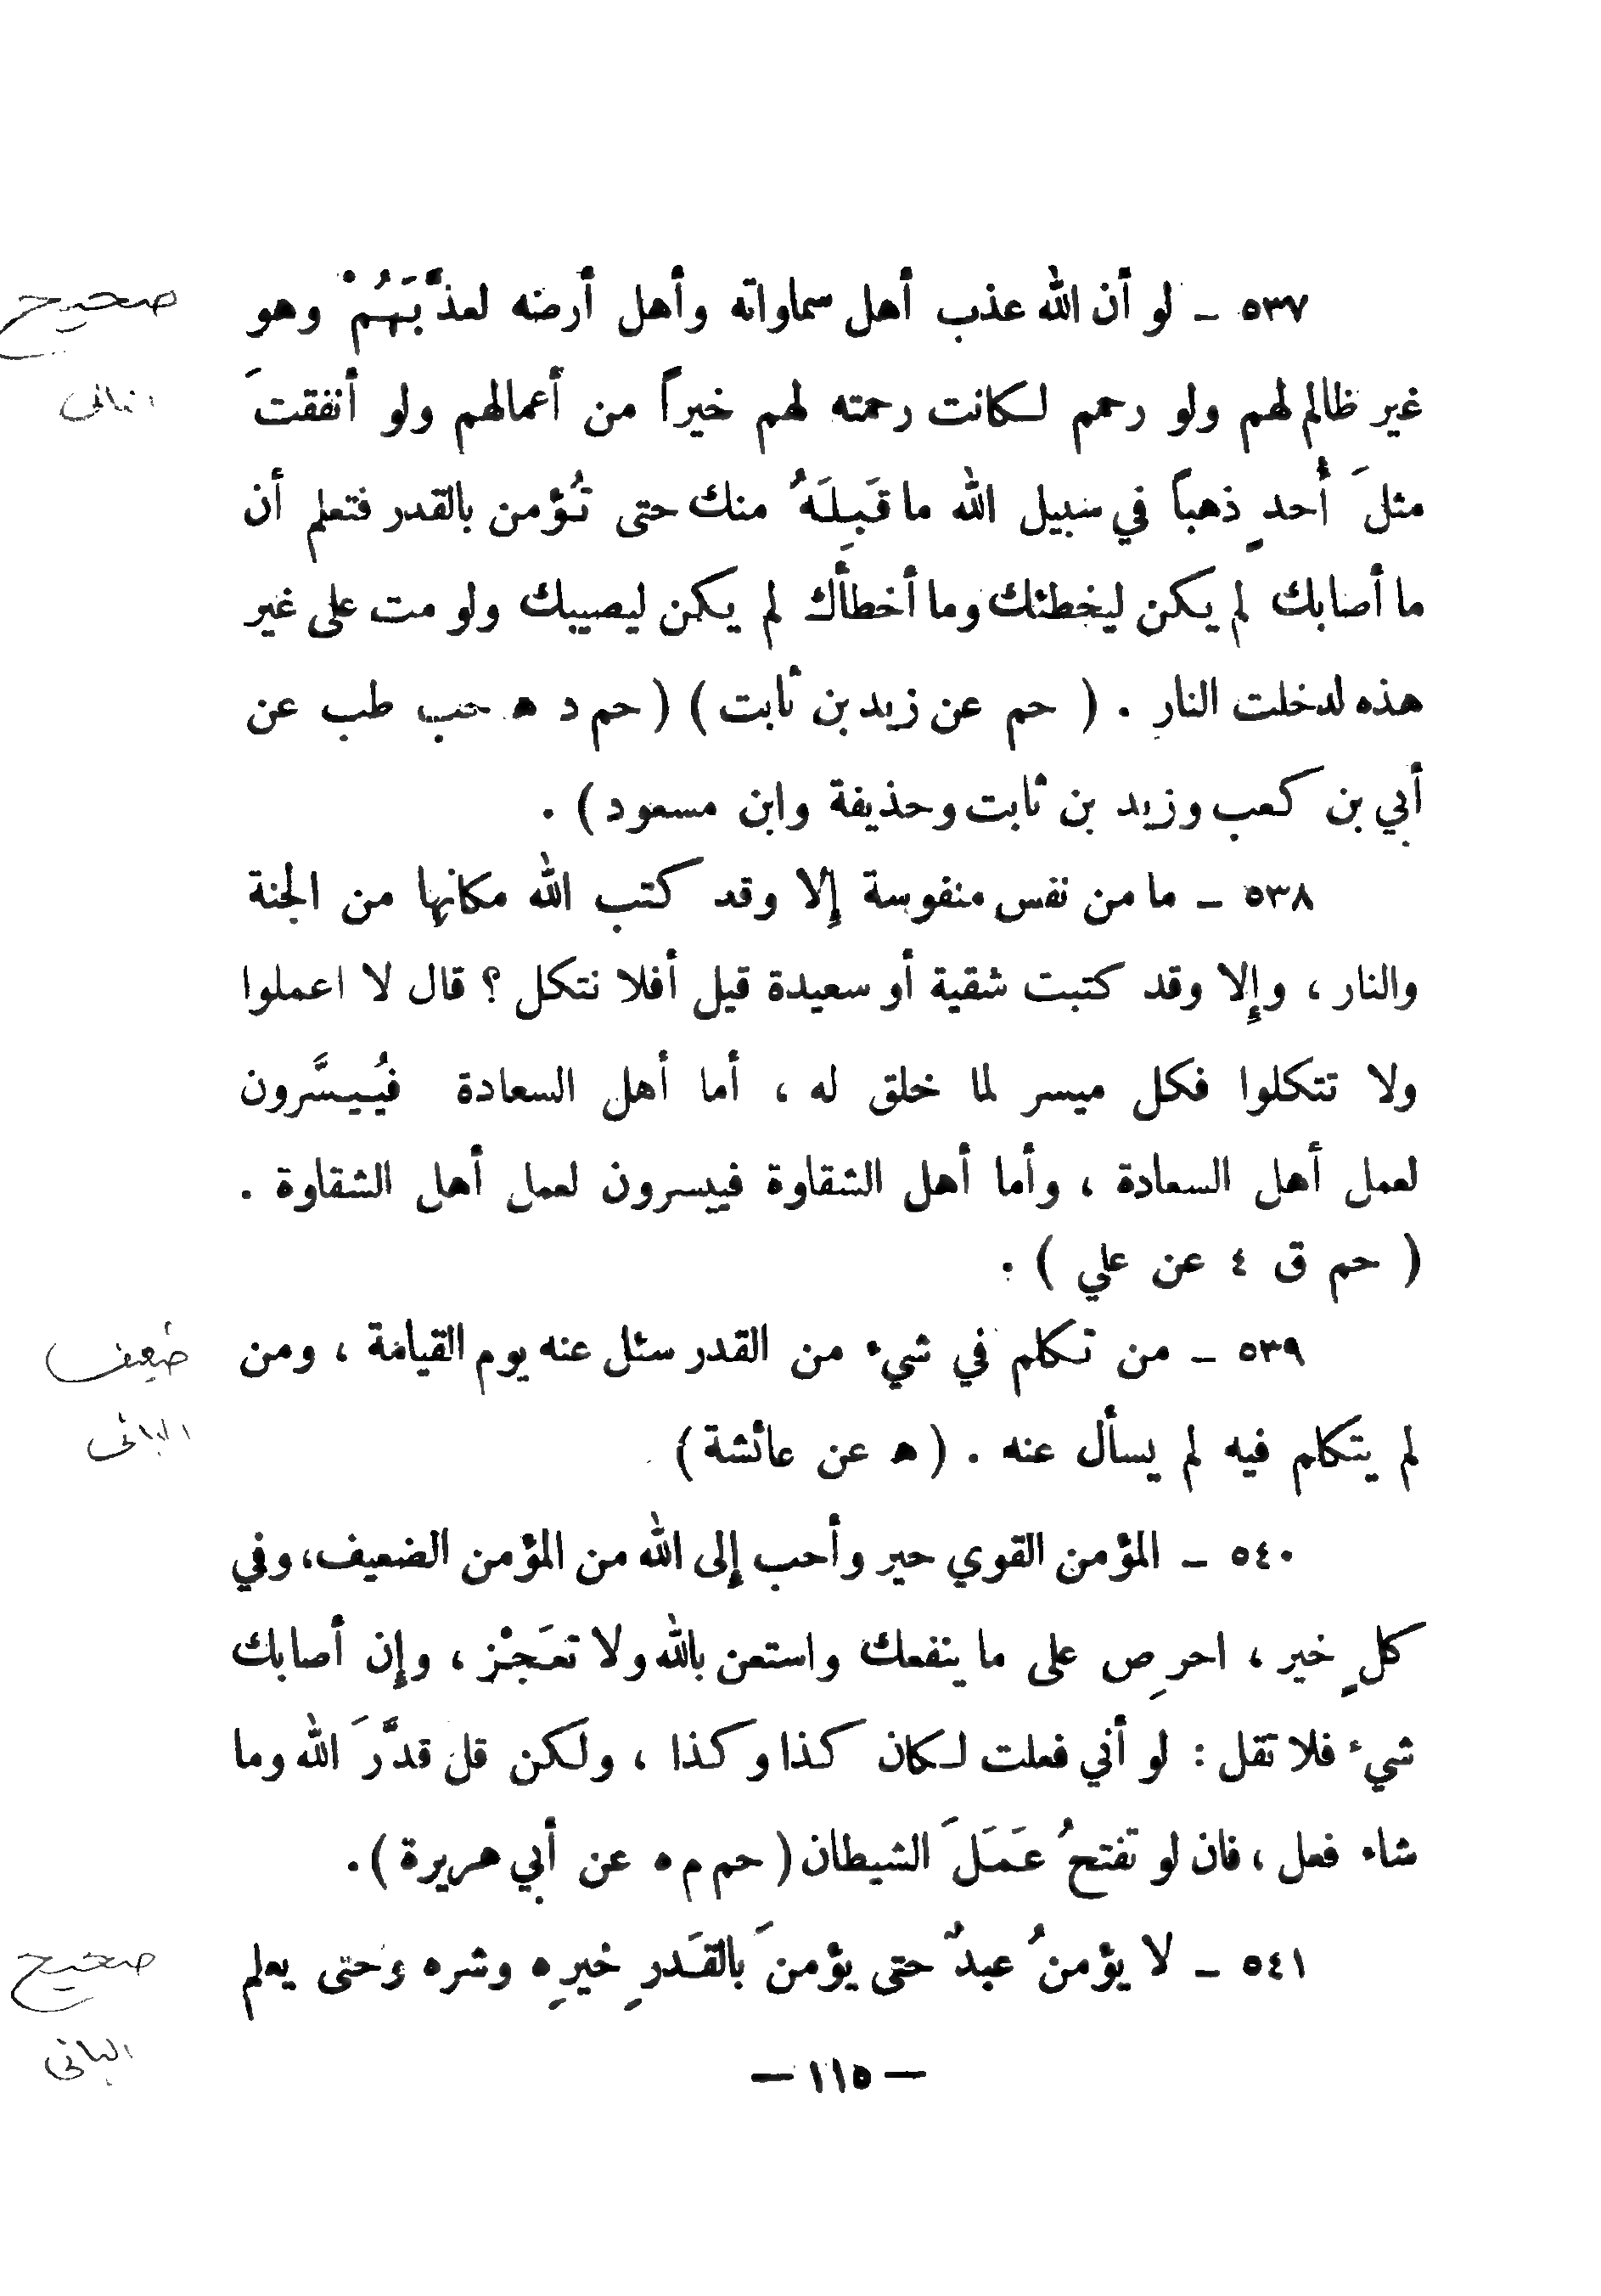 ٥٣٧ ـ لو أن الله عذب أهل سماواته وأهل أرضه لعذَّبَهُمْ وهو
صحيح
غير ظالم لهم ولو رحمهم لكانت رحمته لهم خيراً من أعمالهم ولو أنفقتَ
مثلَ أُحدٍ ذهباً في سبيل الله ما قَبِلَهُ منك حتى تُؤمن بالقدر فتعلم أن
ما أصابك لم يكن ليخطئك وما أخطأك لم يكن ليصيبك ولو مت على غير
هذه لدخلت النار . ( حم عن زيد بن ثابت ) ( حم د ه حب طب عن
أبي بن كعب وزيد بن ثابت وحذيفة وابن مسعود ) .
٥٣٨ ـ ما من نفس منفوسة إلا وقد كتب الله مكانها من الجنة
والنار ، وإلا وقد كتبت شقية أو سعيدة قيل أفلا نتكل ؟ قال لا اعملوا
ولا تتكلوا فكل ميسر لما خلق له ، أما أهل السعادة فيُيسَّرون
لعمل أهل السعادة ، وأما أهل الشقاوة فييسرون لعمل أهل الشقاوة .
( حم ق ٤ عن علي ) .
٥٣٩ ـ من تكلم في شيء من القدر سئل عنه يوم القيامة ، ومن
ضعيف
لم يتكلم فيه لم يسأل عنه . ( ه عن عائشة )
الباني
٥٤٠ ـ المؤمن القوي حير وأحب إلى الله من المؤمن الضعيف، وفي
كلٍ خير ، احرِص على ما ينفعك واستعن بالله ولا تعَجْز ، وإن أصابك
شيء فلا تقل : لو أني فعلت لكان كذا وكذا ، ولكن قل قدَّرَ الله وما
شاء فعل ، فان لو تفتحُ عَمَلَ الشيطان ( حم م ه عن أبي هريرة ) .
٥٤١ ـ لا يؤمنُ عبدٌ حتى يؤمنَ بالقَدرِ خيرِه وشره وحتى يعلم
صحيح
الباني
— ١١٥ —